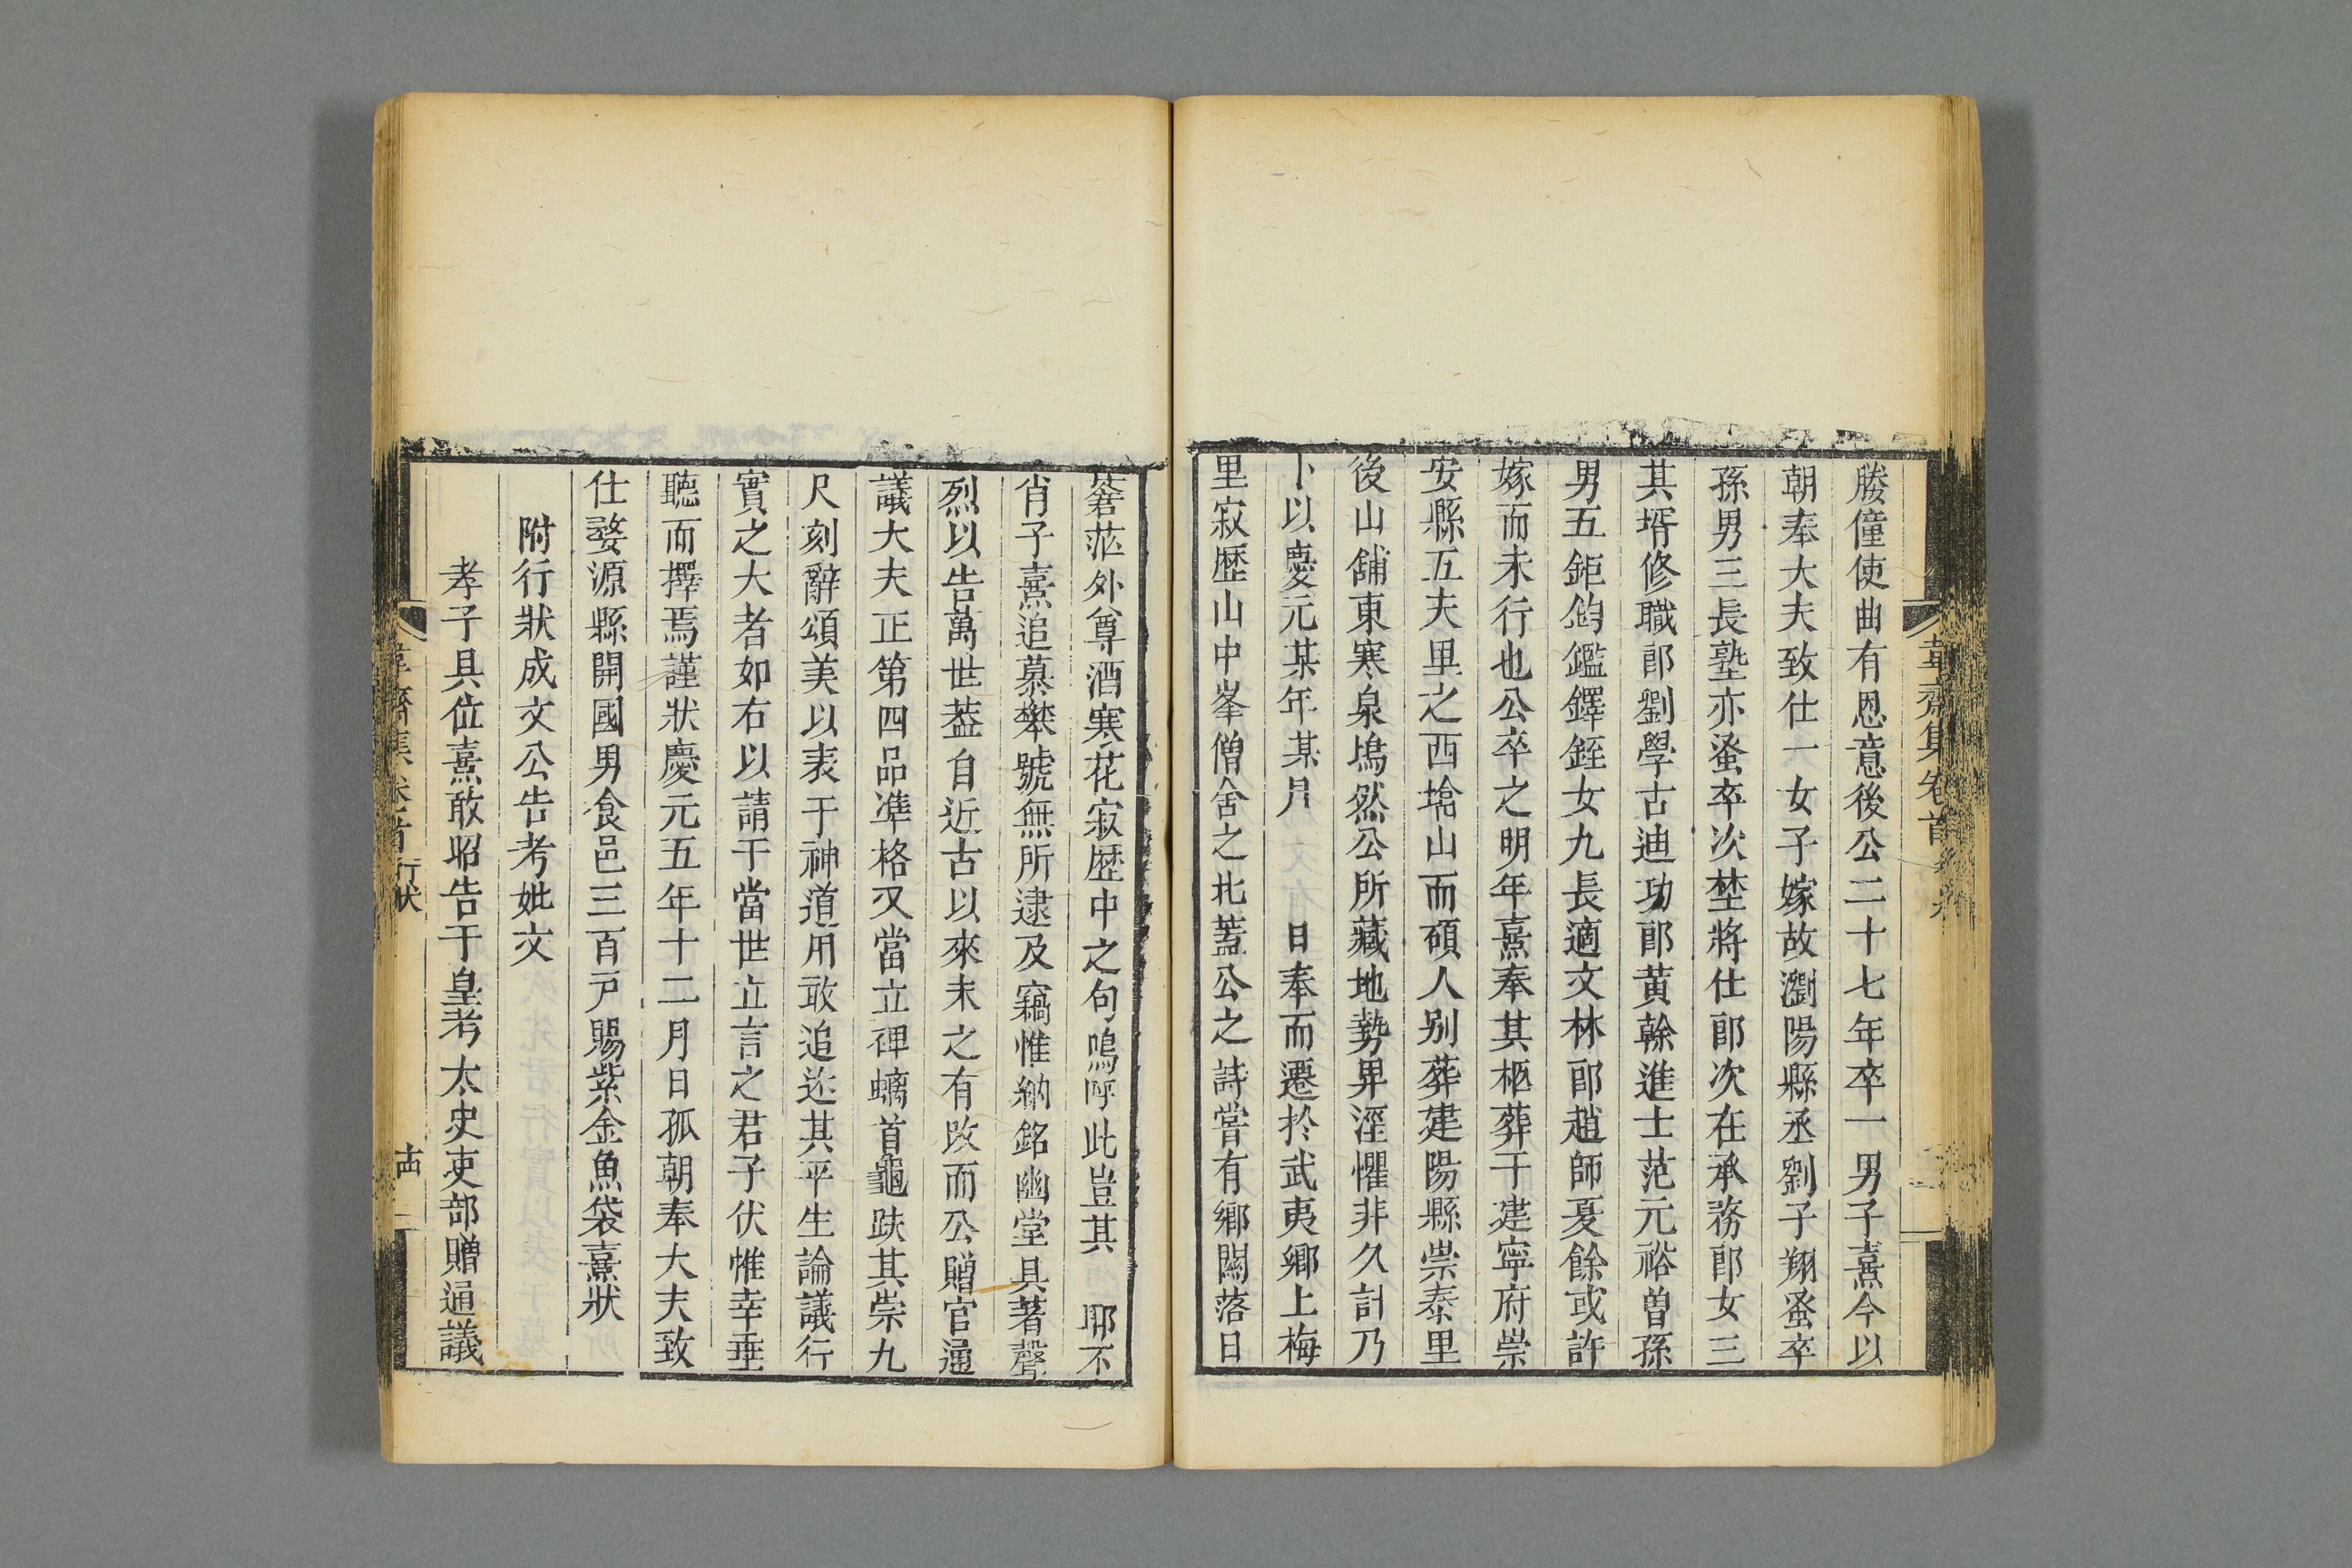 韋齋集卷首
媵僮使曲有恩意後公二十七年卒一男子熹今以
朝奉大夫致仕一女子嫁故瀏陽縣丞劉子翔蚤卒
孫男三長塾亦蚤卒次埜將仕郎次在承務郎女三
其壻修職郎劉學古迪功郎黄榦進士范元裕曾孫
男五鉅鈞鑑鐸銍女九長適文林郎趙師夏餘或許
嫁而未行也公卒之明年熹奉其柩葬于建寧府崇
安縣五夫里之西塔山而碩人别葬建陽縣崇泰里
後山舖東寒泉塢然公所藏地勢卑溼懼非久計乃
卜以慶元某年某月 日奉而遷於武夷鄉上梅
里寂歴山中峯僧舍之北蓋公之詩嘗有鄉關落日
蒼茫外尊酒寒花寂歴中之句嗚呼此豈其 耶不
肖子熹追慕攀號無所逮及竊惟納銘幽堂具著聲
烈以告萬世葢自近古以來未之有改而公贈官通
議大夫正第四品凖格又當立碑螭首龜趺其崇九
尺刻辭頌美以表于神道用敢追述其平生論議行
實之大者如右以請于當世立言之君子伏惟幸垂
聽而擇焉謹狀慶元五年十二月日孤朝奉大夫致
仕婺源縣開國男食邑三百戸賜紫金魚袋熹狀
附行狀成文公告考妣文
孝子具位熹敢昭告于皇考太史吏部贈通議
韋齋集卷首 行狀 十四